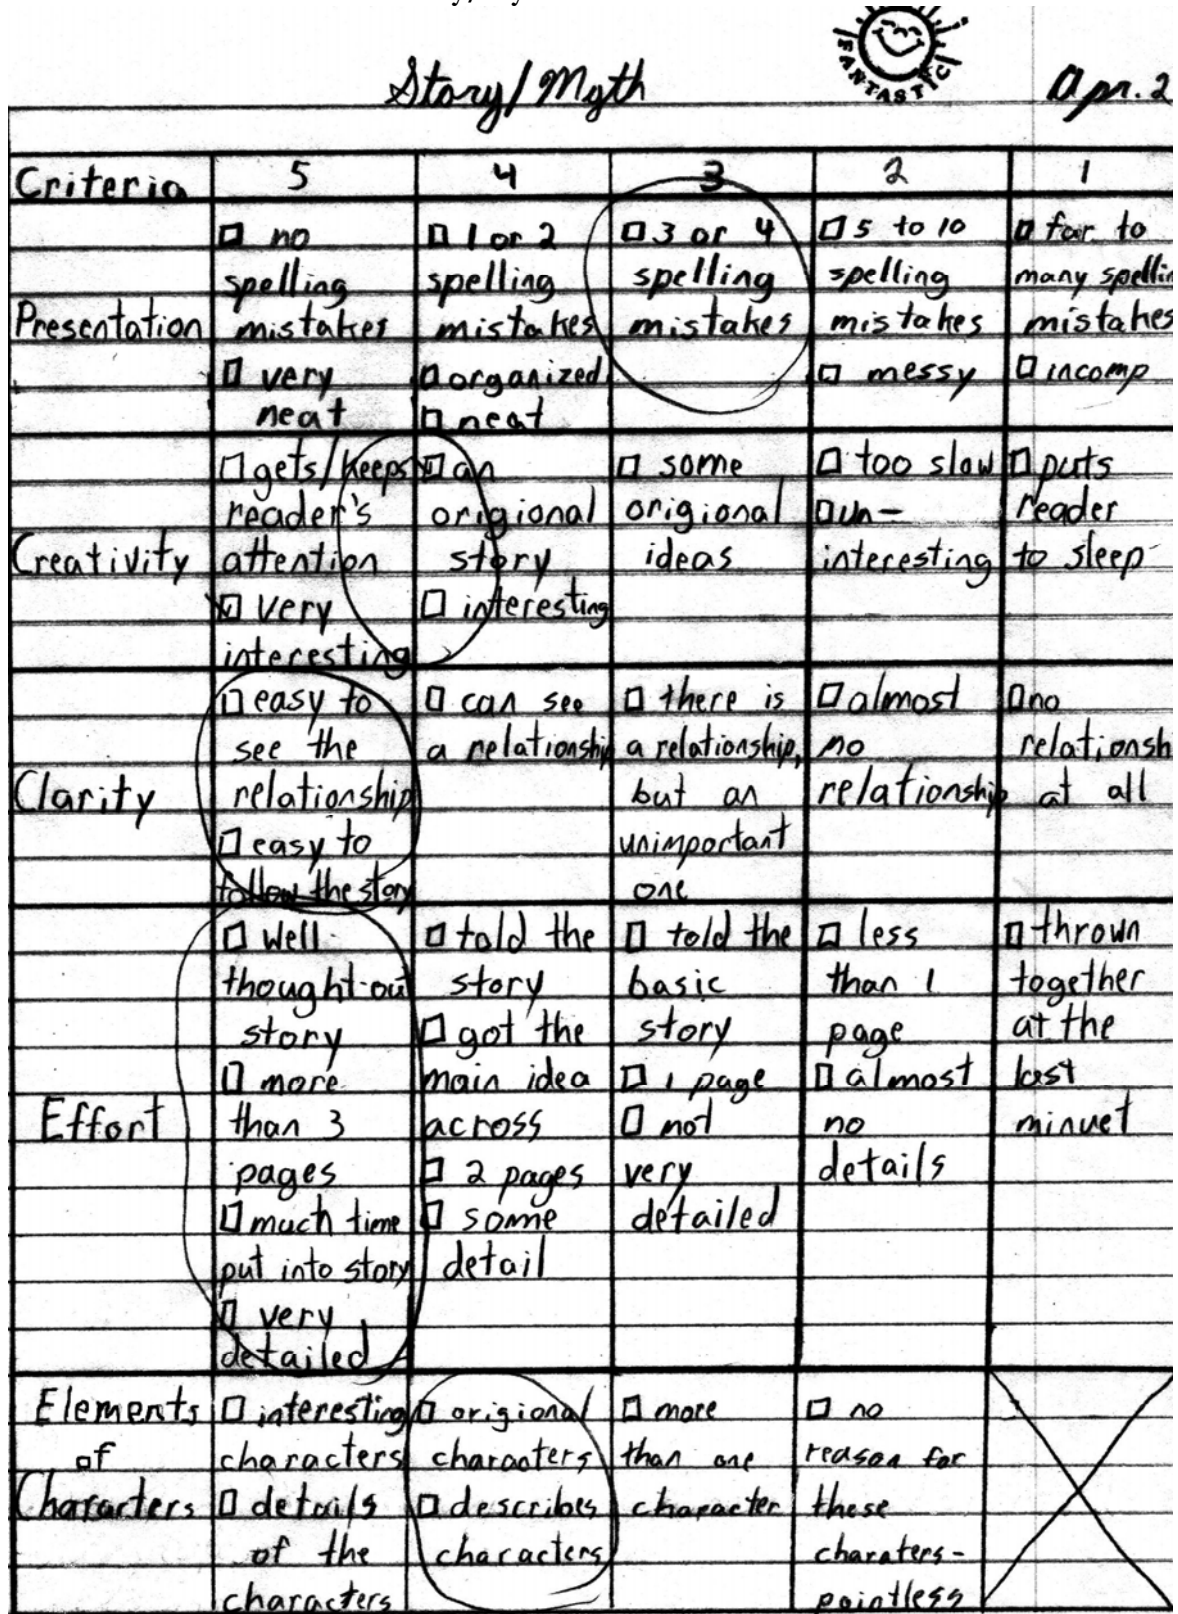 Story/Myth
FANTASTIC
Apr. 2
Criteria
5
4
3
2
1
Presentation
no
spelling
mistakes
very
neat
1 or 2
spelling
mistakes
organized
neat
3 or 4
spelling
mistakes
5 to 10
spelling
mistakes
messy
far to
many spellin
mistakes
incomp
Creativity
gets/keeps
reader's
attention
very
interesting
an
origional
story
interesting
some
origional
ideas
too slow
un-
interesting
puts
reader
to sleep
Clarity
easy to
see the
relationship
easy to
follow the story
can see
a relationship
there is
a relationship,
but an
unimportant
one
almost
no
relationship
no
relationsh
at all
Effort
well
thought-out
story
more
than 3
pages
much time
put into story
very
detailed
told the
story
got the
main idea
across
2 pages
some
detail
told the
basic
story
1 page
not
very
detailed
less
than 1
page
almost
no
details
thrown
together
at the
last
minuet
Elements
of
Characters
interesting
characters
details
of the
characters
origional
characters
describes
characters
more
than one
character
no
reason for
these
charaters-
pointless